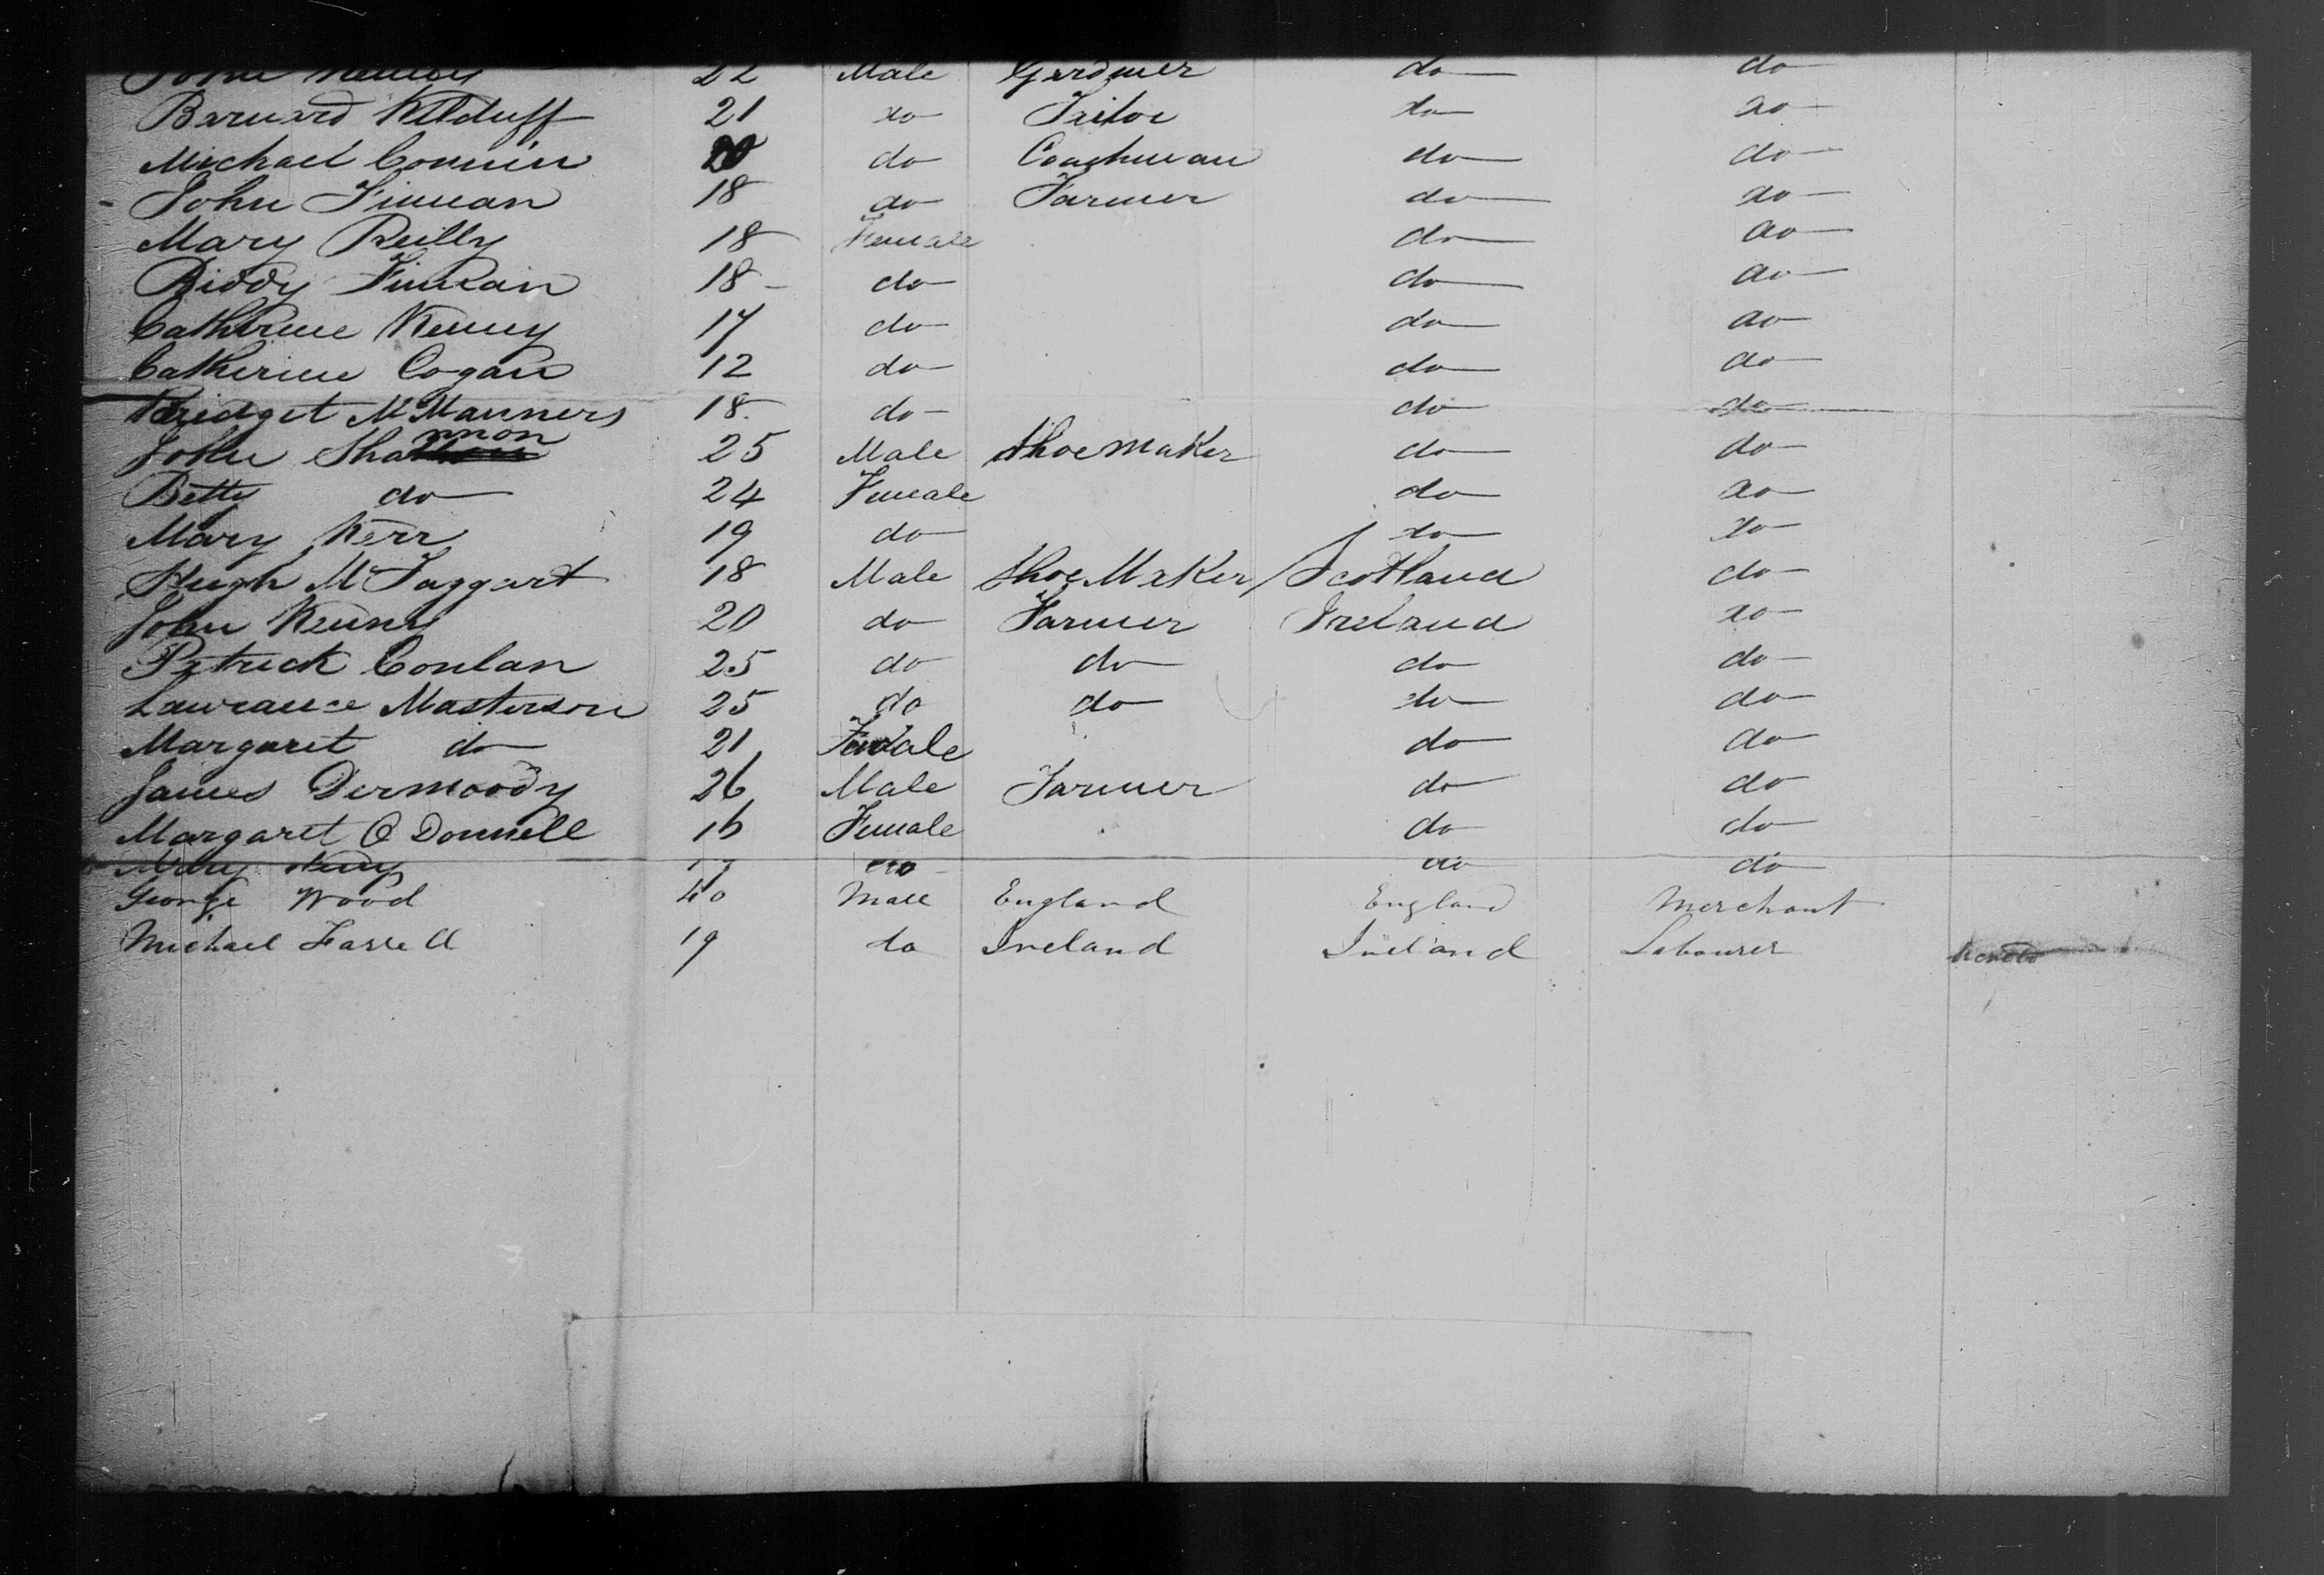 John 22 Male Gardiner do do
Barnard Kilduff 21 do Tailor do do
Michael Commin 20 do Coaghman do do
John Finnan 18 do Farmer do do
Mary Reilly 18 Female do do
Biddy Finnan 18 do do do
Catherine Kenny 17 do do do
Catherine Cogan 12 do do do
Bridget McManners 18 do do do
John Shannon 25 Male Shoemaker do do
Betty do 24 Female do do
Mary Kerr 19 do do do
Hugh McTaggart 18 Male Shoe Maker Scotland do
John Kenny 20 do Farmer Ireland do
Patrick Conlan 25 do do do do
Lawrance Masterson 25 do do do do
Margaret do 21 Female do do
James Dermoody 26 Male Farmer do do
Margaret O Donnell 16 Female do do
Mary do do do
George Wood 40 Male England England Merchant
Michael Farrell 19 do Ireland Ireland Labourer